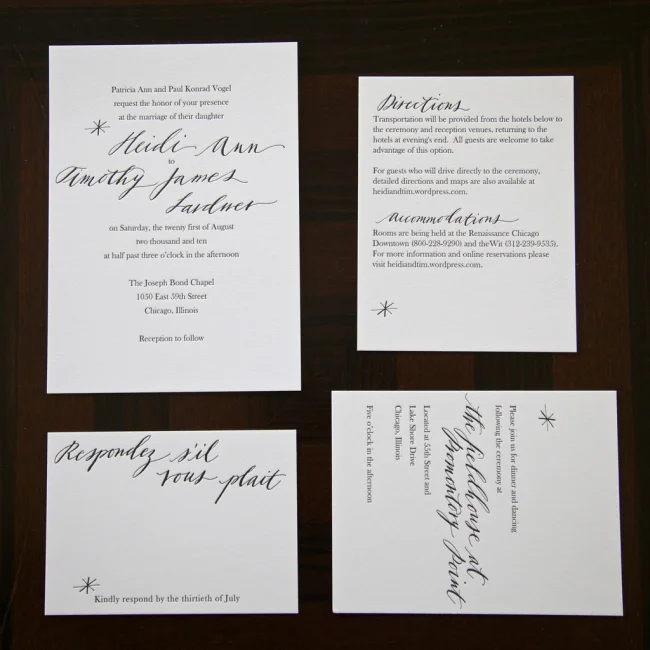 Patricia Ann and Paul Konrad Vogel
request the honor of your presence
at the marriage of their daughter
Heidi Ann
to
Timothy James
Lardner
on Saturday, the twenty first of August
two thousand and ten
at half past three o'clock in the afternoon
The Joseph Bond Chapel
1050 East 59th Street
Chicago, Illinois
Reception to follow
Directions
Transportation will be provided from the hotels below to
the ceremony and reception venues, returning to the
hotels at evening's end. All guests are welcome to take
advantage of this option.
For guests who will drive directly to the ceremony,
detailed directions and maps are also available at
heidiandtim.wordpress.com.
Accommodations
Rooms are being held at the Renaissance Chicago
Downtown (800-228-9290) and theWit (312-239-9535).
For more information and online reservations please
visit heidiandtim.wordpress.com.
Respondez s'il
vous plait
Kindly respond by the thirtieth of July
Please join us for dinner and dancing
following the ceremony at
the fieldhouse at
Promontory Point
Located at 55th Street and
Lake Shore Drive
Chicago, Illinois
Five o'clock in the afternoon